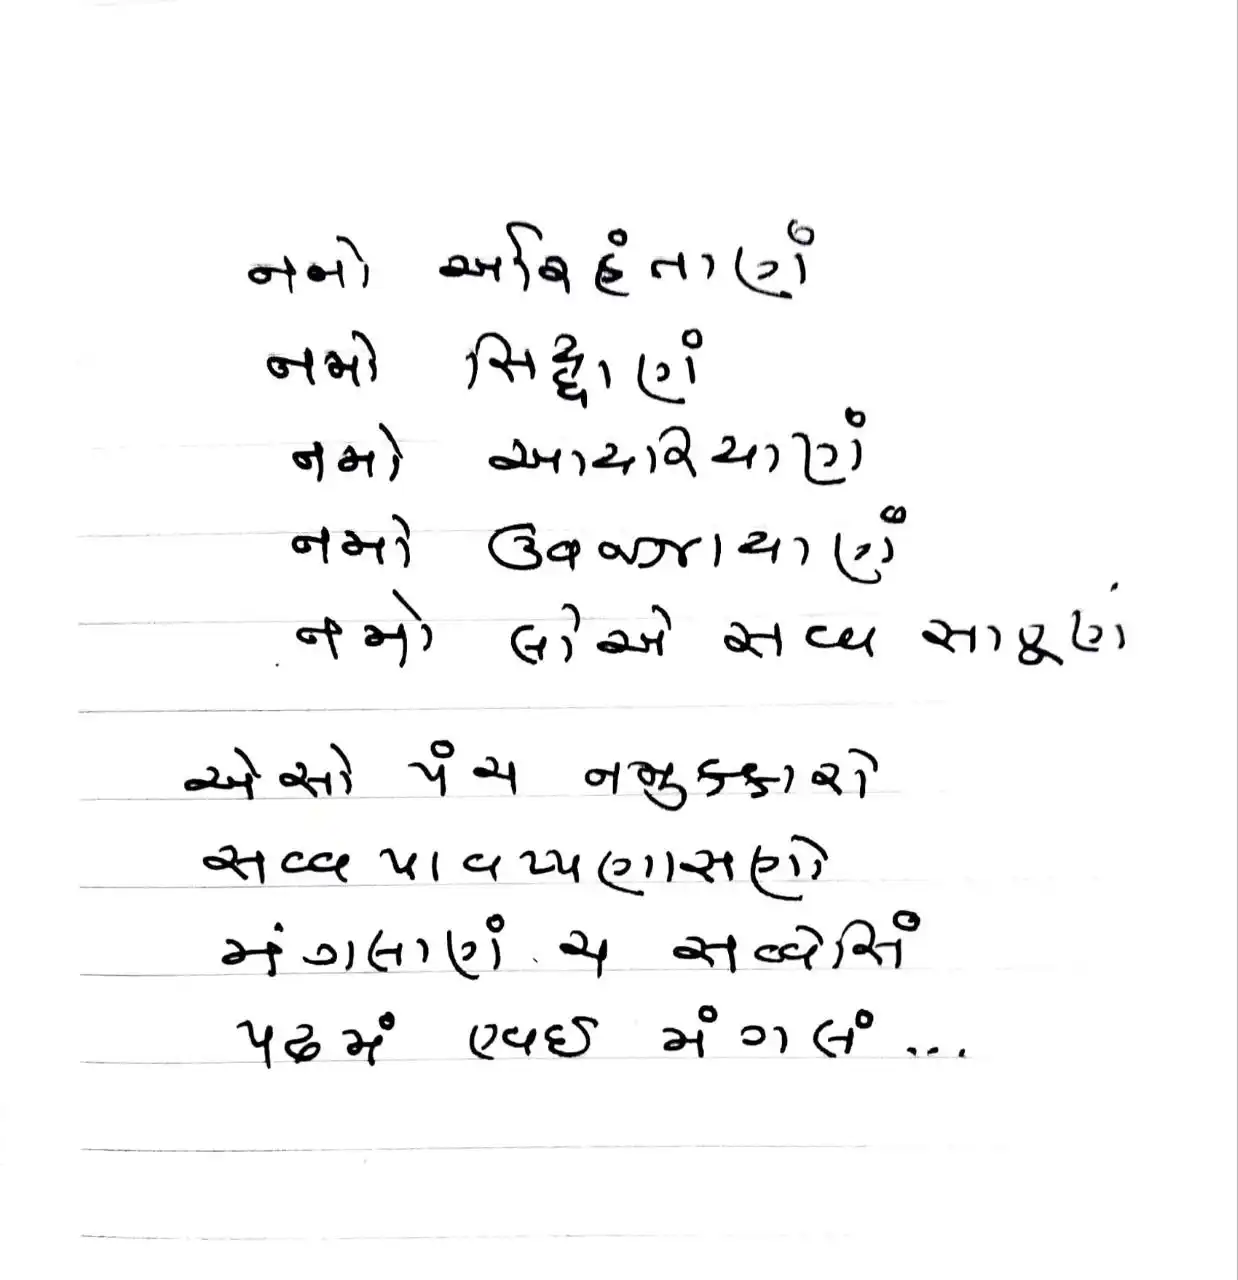 નમો અરિહંતાણં
નમો સિદ્ધાણં
નમો આયરિયાણં
નમો ઉવજ્ઝાયાણં
નમો લોએ સવ્વ સાહૂણં
એસો પંચ નમુક્કારો
સવ્વ પાવપ્પણાસણો
મંગલાણં ચ સવ્વેસિં
પઢમં હવઈ મંગલં ...